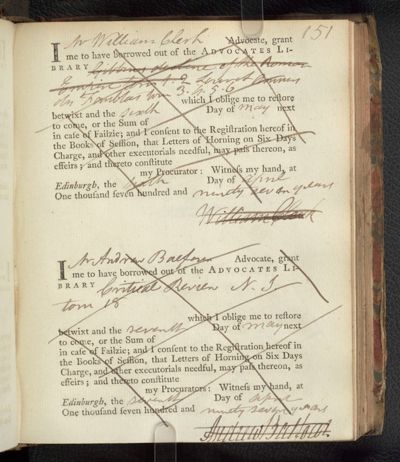 151
I Mr William Clerk Advocate, grant
me to have borrowed out of the ADVOCATES LI-
BRARY Gibbons decline of the Roman
Empire tom 1. 2
tom 3. 4. 5. 6
which I oblige me to restore
betwixt and the sixth Day of May next
to come, or the Sum of
in case of Failzie; and I consent to the Registration hereof in
the Books of Session, that Letters of Horning on Six Days
Charge, and other executorials needful, may pass thereon, as
effeirs; and thereto constitute
my Procurator: Witness my hand, at
Edinburgh, the sixth Day of April
One thousand seven hundred and ninety seven years
William Clerk
I Mr Andrew Balfour Advocate, grant
me to have borrowed out of the ADVOCATES LI-
BRARY Critical Review N. S
tom 18
which I oblige me to restore
betwixt and the seventh Day of May next
to come, or the Sum of
in case of Failzie; and I consent to the Registration hereof in
the Books of Session, that Letters of Horning on Six Days
Charge, and other executorials needful, may pass thereon, as
effeirs; and thereto constitute
my Procurators: Witness my hand, at
Edinburgh, the seventh Day of April
One thousand seven hundred and ninety seven years
Andrew Balfour